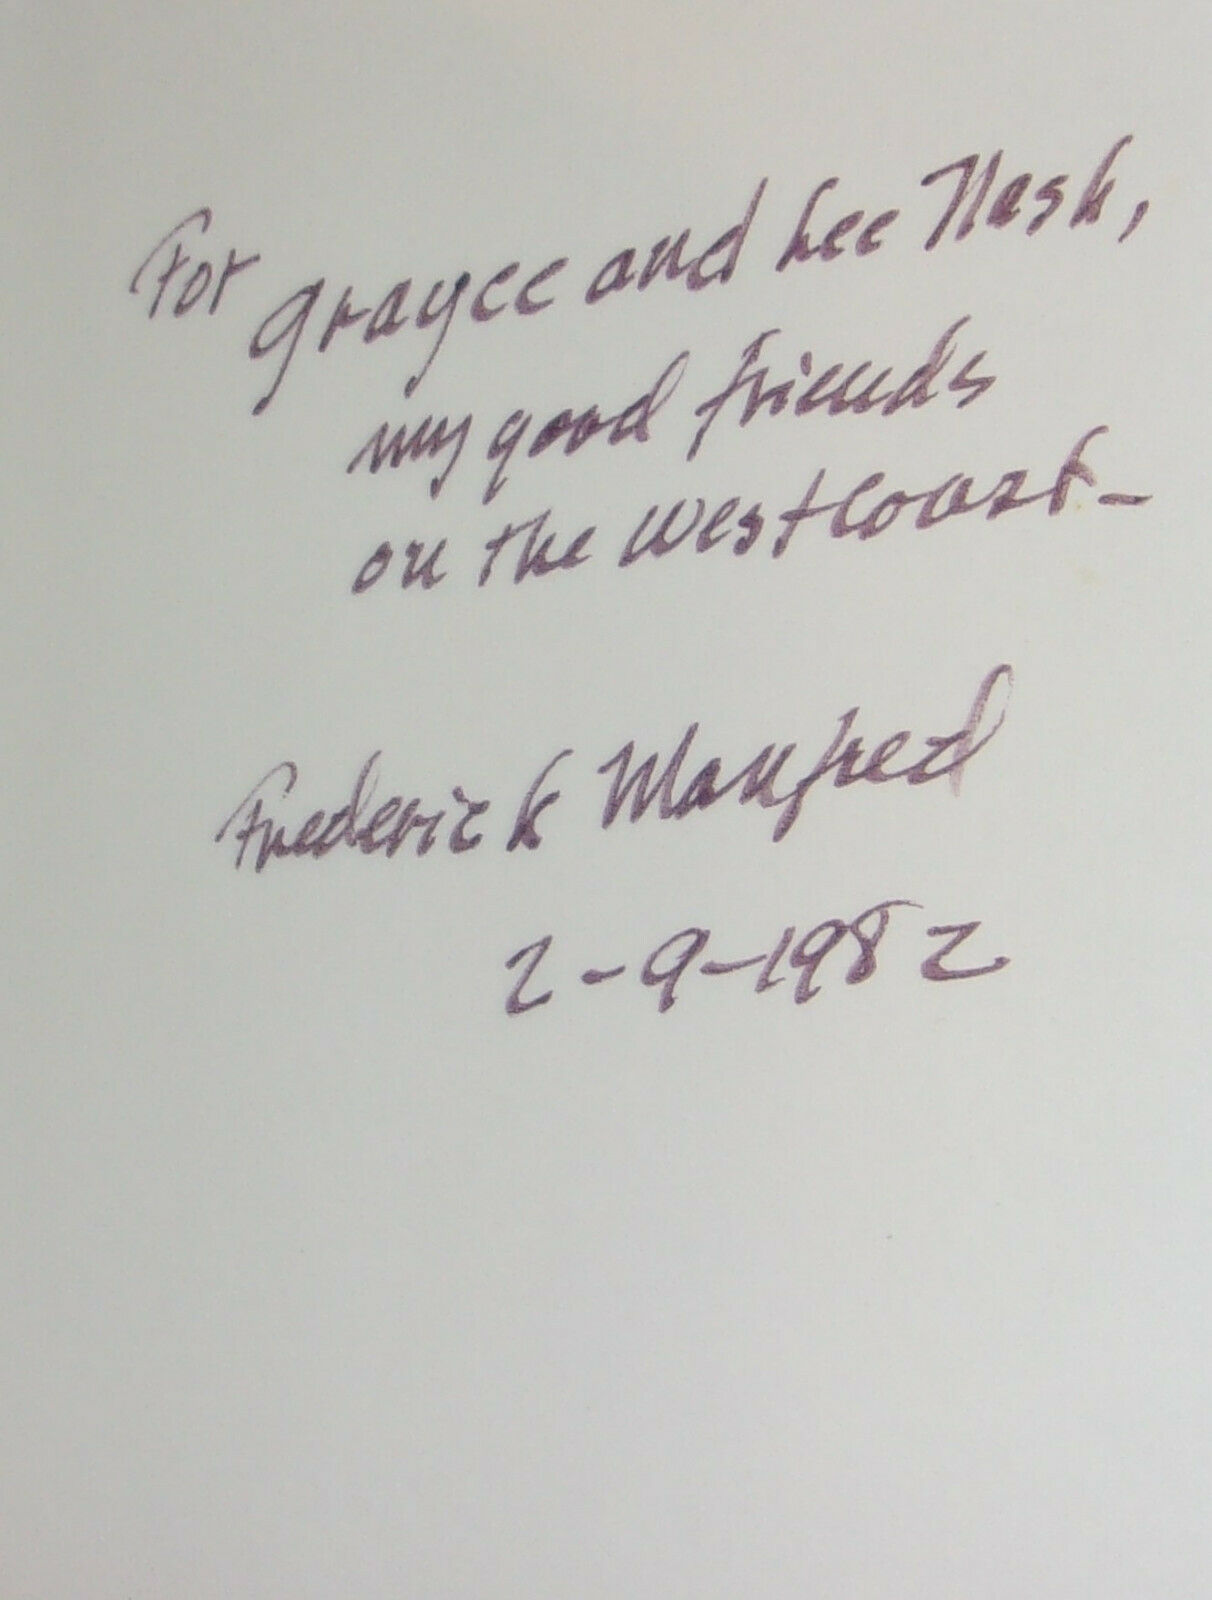 For Graycc and Lee Nash,
my good friends
on the West Coast–
Frederick Manfred
2-9-1982